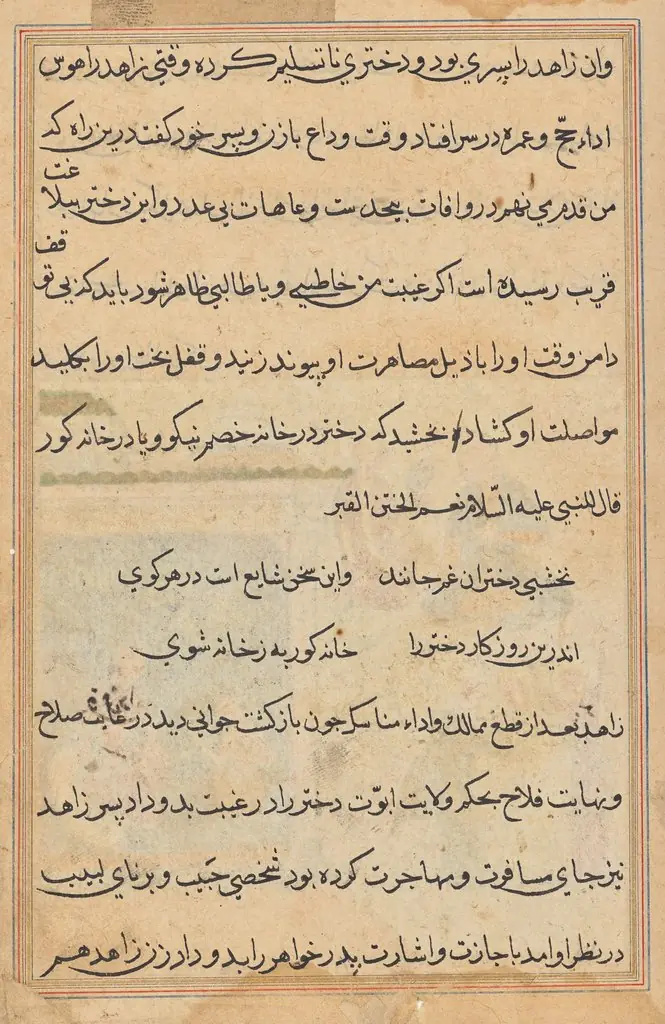 وان زاهد را پسري بود و دختري نا تسليم كرده وقتي زاهد را هوس
اداء حجّ و عمره در سر افتاد وقت وداع با زن و پسر خود كفت درين راه كه
من قدم مي نهم در و افات بيحد ست و عاهات بي عدد و اين دختر ببلاغت
قريب رسيده است اكر غيبت من خاطبي و يا طالبي ظاهر شود بايد كه بي توقف
دامن وقت او را با ذيل مصاهرت او پيوند زنيد و قفل بخت او را بكليد
مواصلت او كشاد بخشيد كه دختر در خانه خصم نيكو و يا در خانه كور
قال للنبي عليه السّلام نعم الختن القبر
نخشبي دختران غم جانند واين سخن شايع است در هر كوي
اندرين روز كار دختر را خانه كور به ز خانه شوي
زاهد بعد از قطع ممالك واداء مناسك جون باز كشت جواني ديد در غايت صلاح
و نهايت فلاح بحكم ولايت ابوّت دختر را در غيبت بدو داد پسر زاهد
نيز جاي مسافرت و مهاجرت كرده بود شخصي حَبيب و برناي لبيب
در نظر او امد با جازت و اشارت پدر خواهر را بدو داد زن زاهد هم